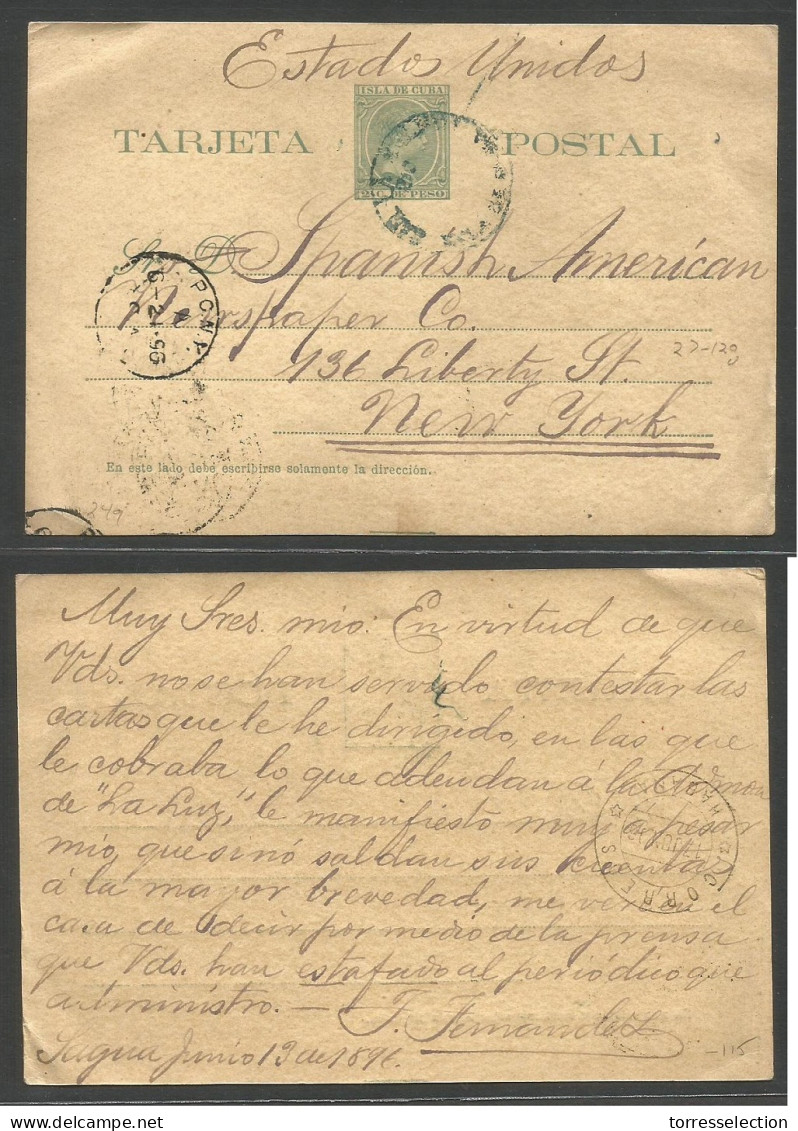 Estados Unidos
ISLA DE CUBA
TARJETA POSTAL
2 C. DE PESO
Sr. D. Spanish American
Newspaper Co.
136 Liberty St.
New York
27-129
P.O.N.Y.
6-21-96
En este lado debe escribirse solamente la dirección.
249
Muy Sres. mio: En virtud de que
Vds. no se han servido contestar las
cartas que le he dirigido, en las que
le cobraba lo que adeudan á la Admon
de "La Luz," le manifiesto muy á pesar
mio, que sinó saldan sus cuentas
á la mayor brevedad, me veré en el
caso de decir por medio de la prensa
que Vds. han estafado al periódico que
administro. — F. Fernandez
Sagua Junio 13 de 1896.
CORREOS
HABANA
-115
torresseleccion